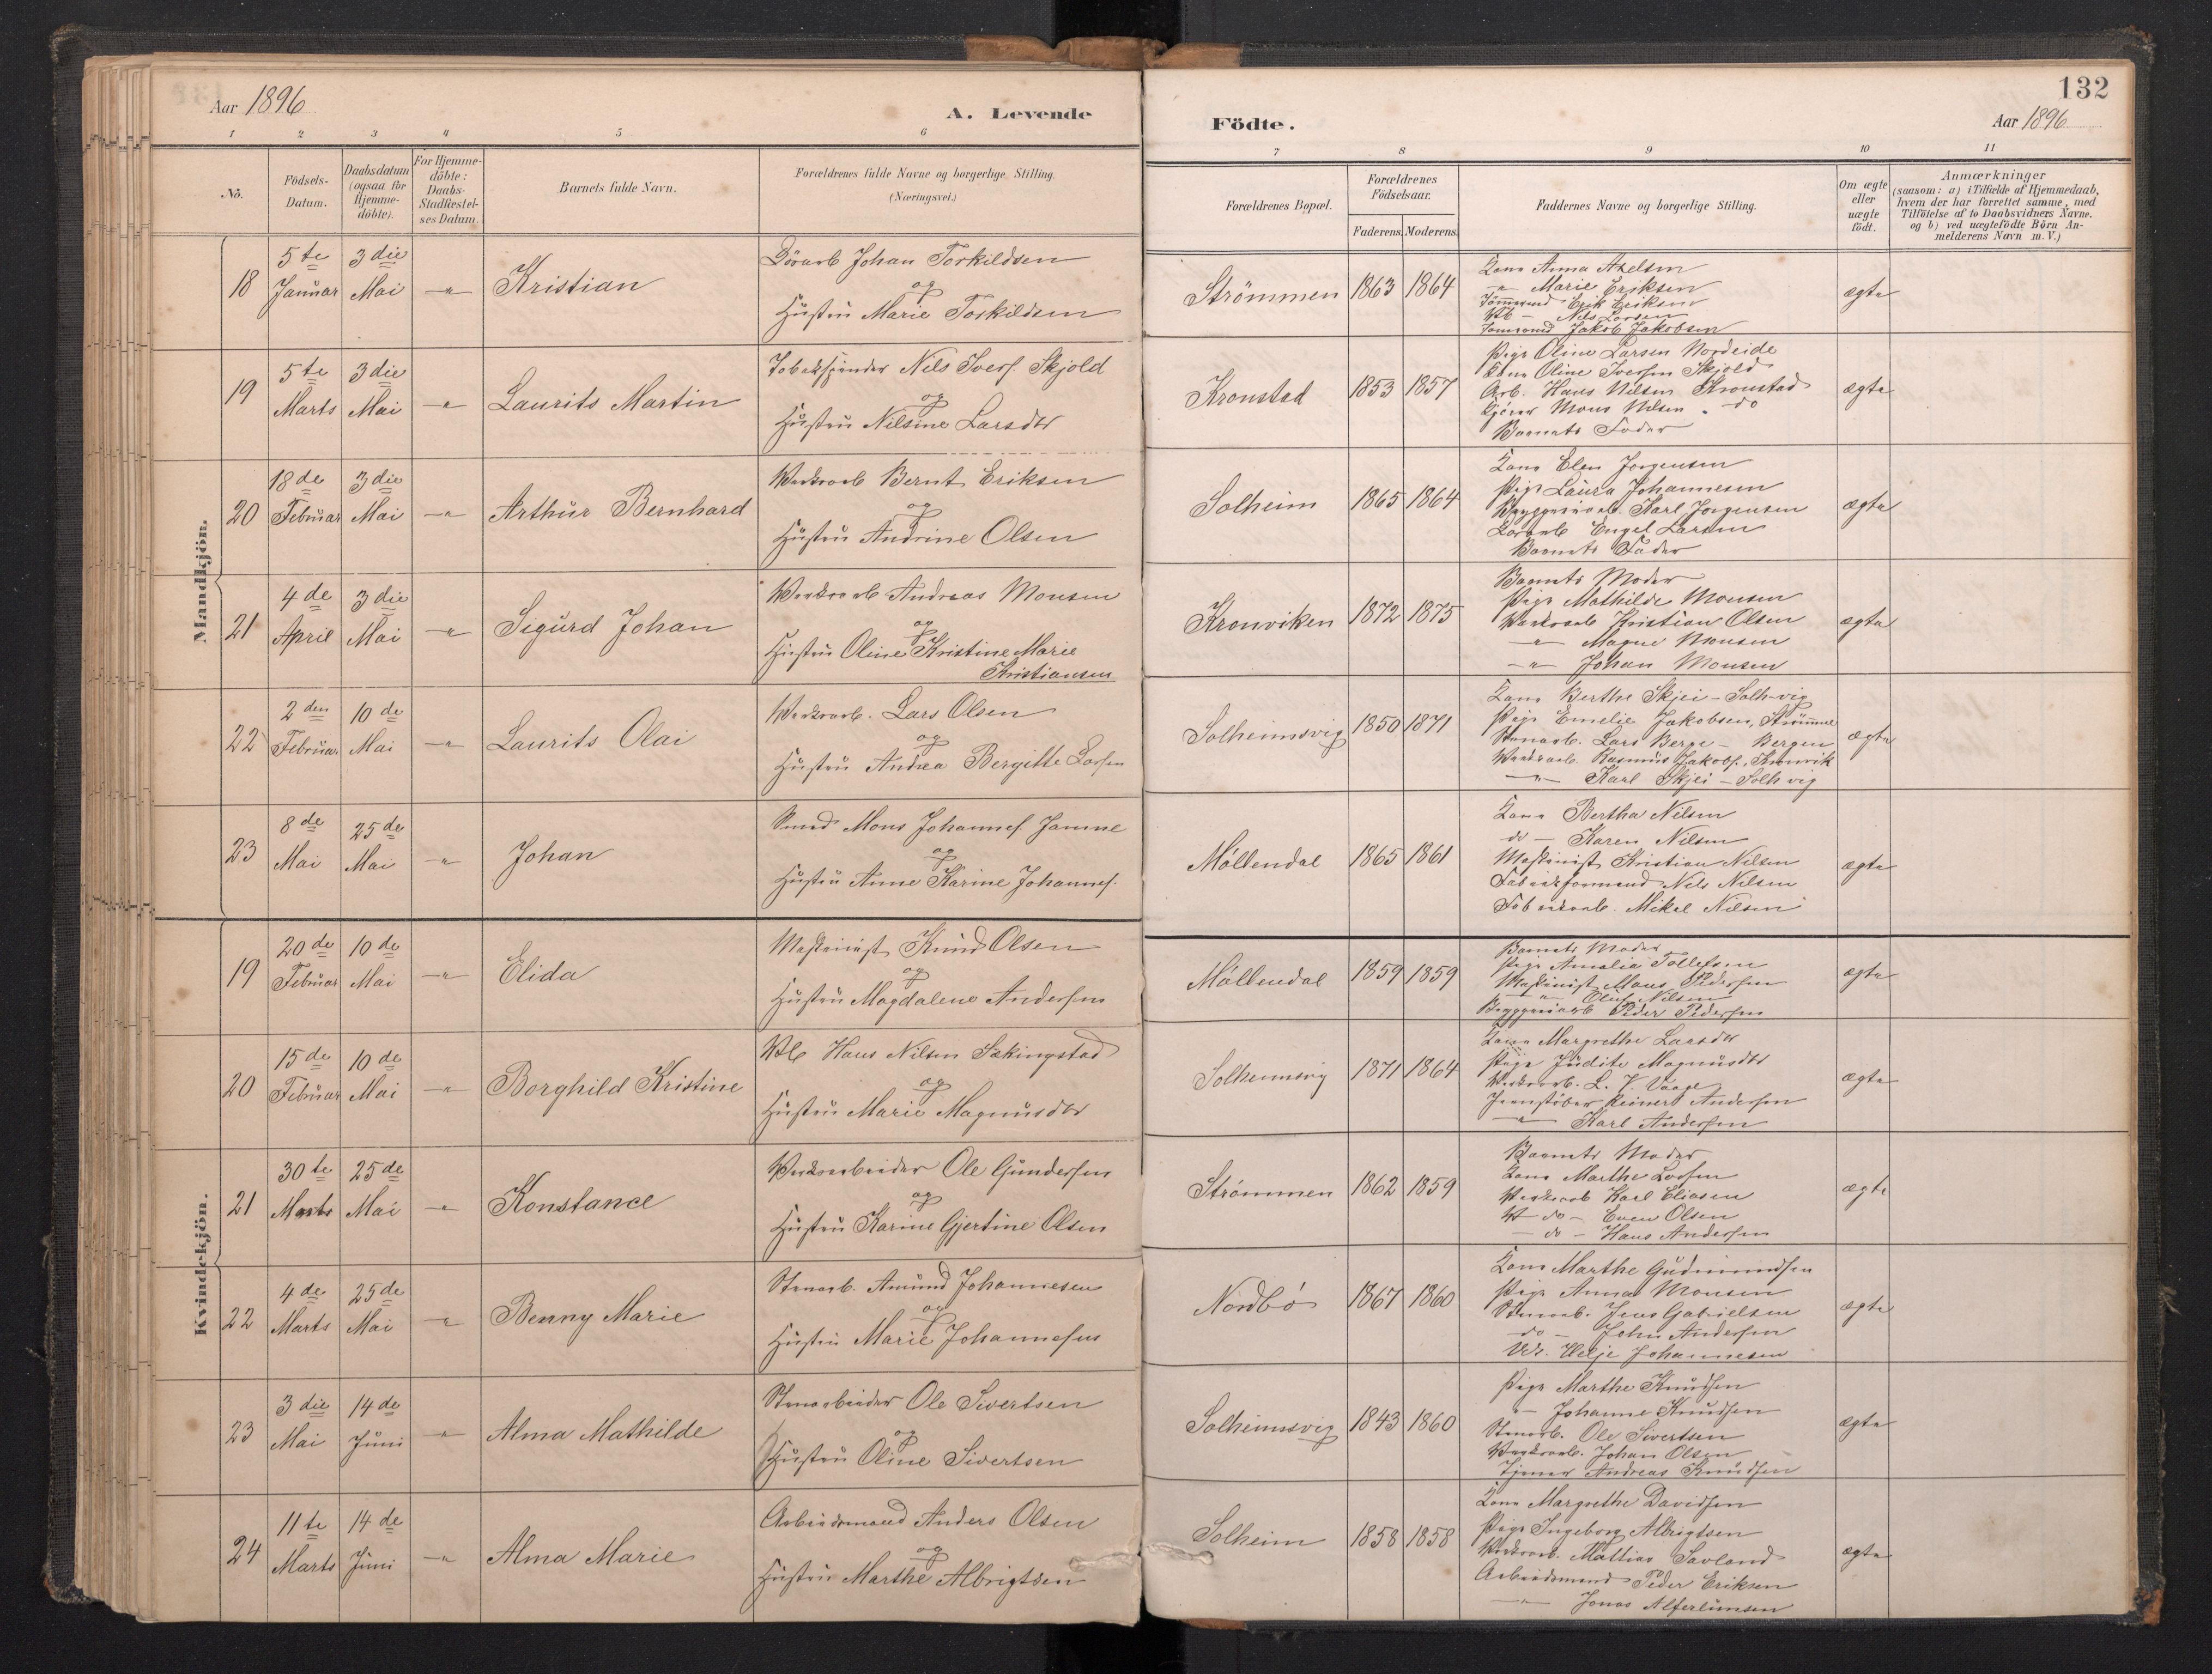 132
Aar 1896
A. Levende
Födte.
Aar 1896
1 2 3 4 5 6 7 8 9 10 11
No.
Födsels-
Datum.
Daabsdatum
(ogsaa for
Hjemme-
döbte).
For Hjemme-
döbte:
Daabs-
Stadfæstel-
ses Datum.
Barnets fulde Navn.
Forældrenes fulde Navne og borgerlige Stilling.
(Næringsvei.)
Forældrenes Bopæl.
Forældrenes
Födselsaar.
Faderens. Moderens.
Faddernes Navne og borgerlige Stilling.
Om ægte
eller
uægte
födt.
Anmærkninger
(saasom: a) i Tilfælde af Hjemmedaab,
hvem der har forrettet samme, med
Tilföielse af to Daabsvidners Navne.
og b) ved uægtefödte Börn An-
melderens Navn m. V.)
Mandkjön.
18
5te
Januar
3die
Mai
-"-
Kristian
Johan Torkildsen
og
Hustru Marie Torkildsen
Strömmen
1863
1864
Kone Anna Axelsen
" Marie Eriksen
Erik Eriksen
Nils Larsen
Jakob Jakobsen
ægte
19
5te
Marts
3die
Mai
-"-
Laurits Martin
NilsIvers. Skjold
og
Hustru Nilsine Larsdtr
Kronstad
1853
1857
Pige Oline Larsen Nordeide
Kone Oline Iversen Skjold
Arb. Hans Nilsen Kronstad
Mons Nilsen do
Barnets Fader
ægte
20
18de
Februar
3die
Mai
-"-
Arthur Bernhard
Værksarb Bernt Eriksen
og
Hustru Andrine Olsen
Solheim
1865
1864
Kone Elen Jorgensen
Pige Laura Johannesen
Bryggeriarb. Karl Jorgensen
Engel Larsen
Barnets Fader
ægte
21
4de
April
3die
Mai
-"-
Sigurd Johan
Værksarb Andreas Monsen
og
Hustru Oline Kristine Marie
Kristiansen
Kronviken
1872
1875
Barnets Moder
Pige Mathilde Monsen
Værksarb Kristian Olsen
-"- Magne Monsen
-"- Johan Monsen
ægte
22
2den
Februar
10de
Mai
-"-
Laurits Olai
Værksarb. Lars Olsen
og
Hustru Andrea Bergitte Larsen
Solheimsvig
1850
1871
Kone Berthe Skjei - Solhvig
Pige Emelie Jakobsen, Strömme
Stenarb. Lars Berge - Bergen
Værksarb. Rasmus Jakobs., Kronvik
-"- Karl Skjei - Solhvig
ægte
23
8de
Mai
25de
Mai
-"-
Johan
Smed Mons Johannes. Jamne
og
Hustru Anne Karine Johannes.
Möllendal
1865
1861
Kone Bertha Nilsen
do - Karen Nilsen
Maskinist Kristian Nilsen
Fabrikformand Nils Nilsen
Fabrikarb. Mikal Nilsen
ægte
Kvindekjön.
19
20de
Februar
10de
Mai
-"-
Elida
Maskinist Knud Olsen
og
Hustru Magdalene Andersen
Möllendal
1859
1859
Barnets Moder
Pige Amalia Tollefsen
Maskinist Mons Pedersen
-"- Oluf Nilsen
Bryggeriarb Peder Pedersen
ægte
20
15de
Februar
10de
Mai
-"-
Borghild Kristine
Hans Nilsen Sækingstad
og
Hustru Marie Magnusdtr
Solheimsvig
1871
1864
Kone Margrethe Larsdtr
Pige Judite Magnusdtr
Værksarb. L. V. Vaage
Jernstöber Reinert Andersen
-"- Karl Andersen
ægte
21
30te
Marts
25de
Mai
-"-
Konstance
Værksarbeider Ole Gundersen
og
Hustru Karine Gjertine Olsen
Strömmen
1862
1859
Barnets Moder
Kone Marthe Larsen
Værksarb Karl Eliasen
do - Even Olsen
- do - Hans Andersen
ægte
22
4de
Marts
25de
Mai
-"-
Benny Marie
Stenarb. Amund Johannesen
og
Hustru Marie Johannesen
Nordbö
1867
1860
Kone Marthe Gudmundsen
Pige Anna Monsen
Stenarb. Jens Gabrielsen
do - John Andersen
Helje Johannesen
ægte
23
3die
Mai
14de
Juni
-"-
Alma Mathilde
Stenarbeider Ole Sivertsen
og
Hustru Oline Sivertsen
Solheimsvig
1843
1860
Pige Marthe Knudsen
-"- Johanne Knudsen
Stenarb. Ole Sivertsen
Værksarb. Johan Olsen
Tjener Andreas Knudsen
ægte
24
11te
Marts
14de
Juni
-"-
Alma Marie
Arbeidsmand Anders Olsen
og
Hustru Marthe Albrigtsen
Solheim
1858
1858
Kone Margrethe Davidsen
Pige Ingeborg Albrigtsen
Værksarb. Mathias Savland
Arbeidsmand Peder Eriksen
-"- Jonas
ægte